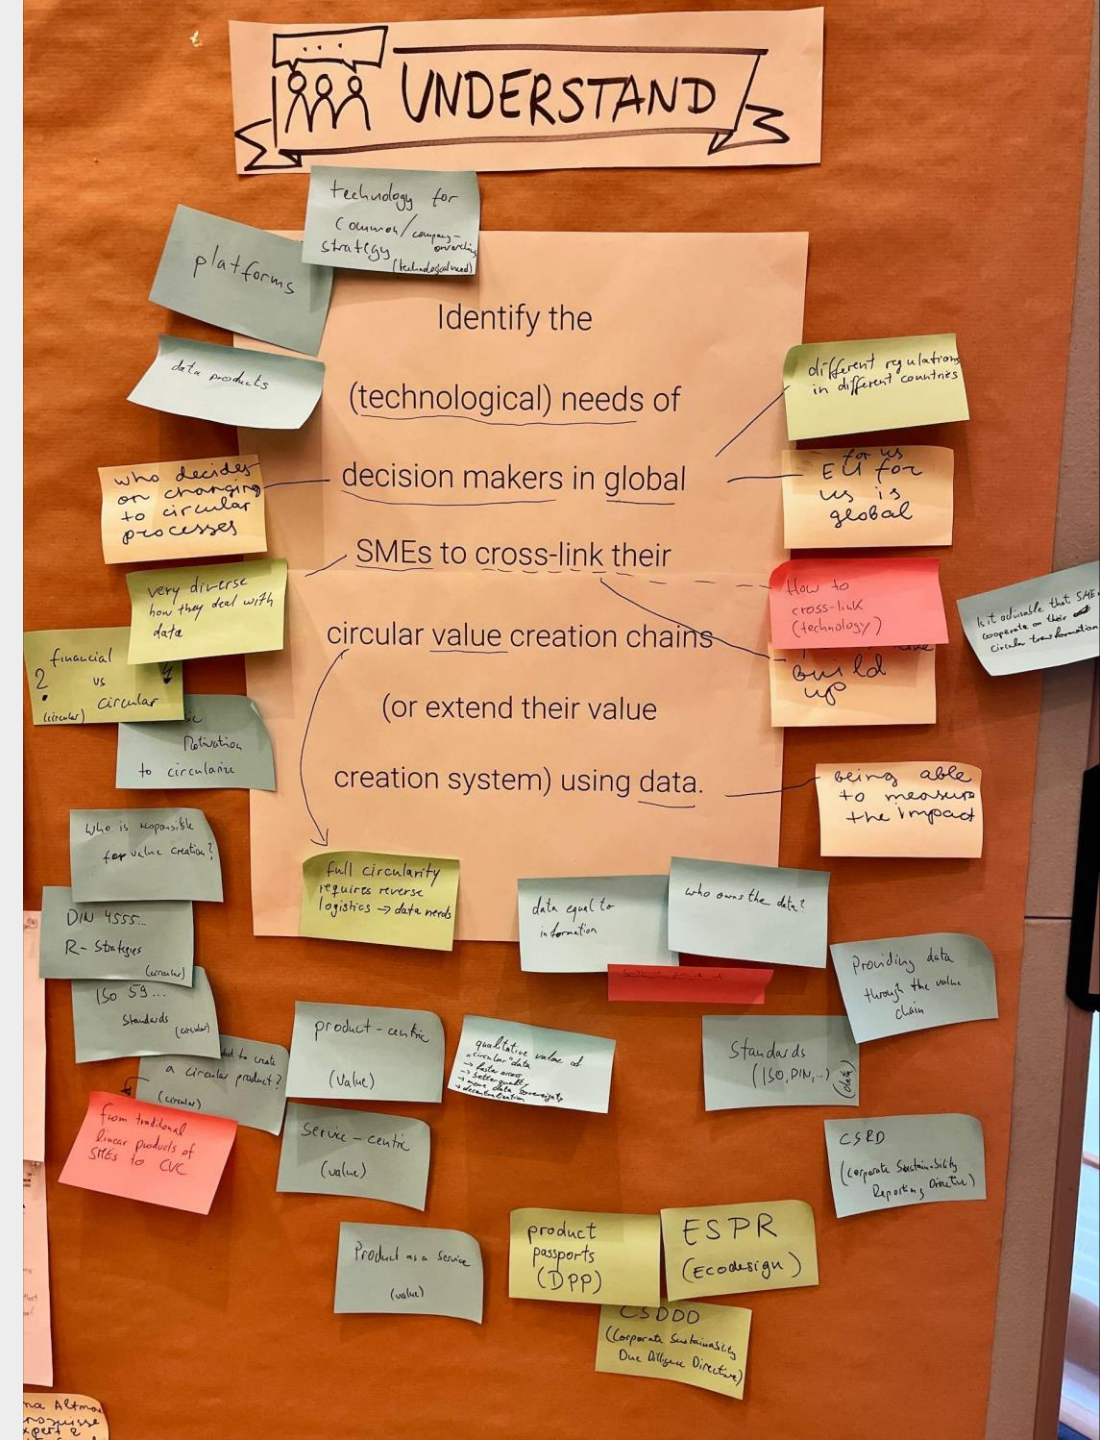 UNDERSTAND
technology for
common/company-
strategy
platforms
data products
Identify the
(technological) needs of
decision makers in global
SMEs to cross-link their
circular value creation chains
(or extend their value
creation system) using data.
different regulations
in different countries
for us
EU for
us is
global
who decides
on changing
to circular
processes
very diverse
how they deal with
data
How to
cross-link
(technology)
build
up
Is it advisable that SMEs
cooperate on their
circular transformation
financial
? vs
circular
(circular)
Motivation
to circularize
being able
to measure
the impact
Who is responsible
for value creation?
full circularity
requires reverse
logistics → data needs
data equal to
information
who owns the data?
DIN 4555...
R-Strategies
(circular)
Providing data
through the value
chain
ISO 59...
Standards
(circular)
product-centric
(value)
qualitative value of
"circular" data
→ faster access
→ better quality
→ more data sovereignty
→ decentralization
Standards
(ISO, DIN,..)
(data)
to create
a circular product?
(circular)
from traditional
linear products of
SMEs to CVC
service-centric
(value)
CSRD
(Corporate Sustainability
Reporting Directive)
Product as a Service
(value)
product
passports
(DPP)
ESPR
(Ecodesign)
CSDDD
(Corporate Sustainability
Due Diligence Directive)